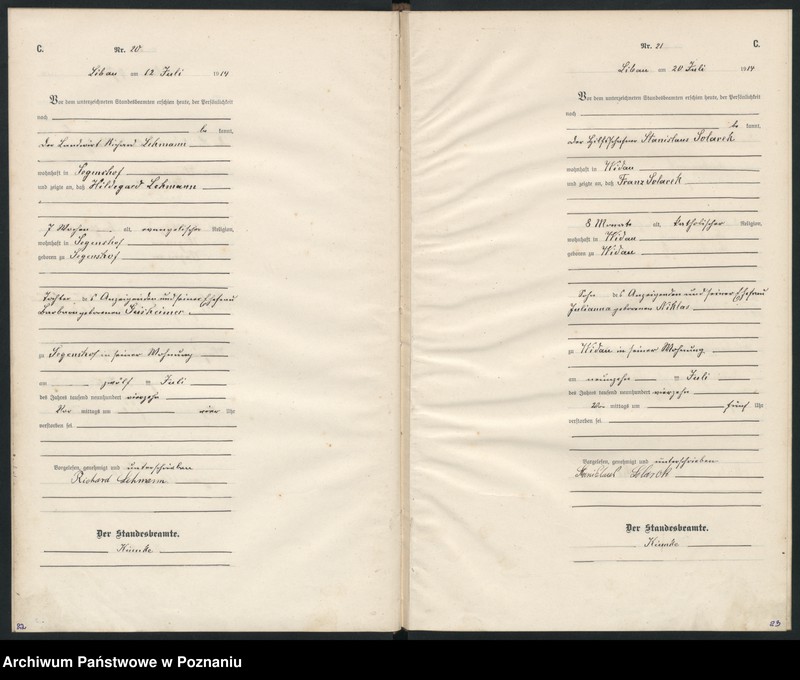 C.
Nr. 20
Libau am 12 Juli 1914
Vor dem unterzeichneten Standesbeamten erschien heute, der Persönlichkeit
nach
be kannt,
der Landwirt Richard Lehmann
wohnhaft in Segenshof
und zeigte an, daß Hildegard Lehmann
7 Wochen alt, evangelischer Religion,
wohnhaft in Segenshof
geboren zu Segenshof
Tochter des Anzeigenden und seiner Ehefrau
Barbara geborenen
zu Segenshof in seiner Wohnung
am zwölf ten Juli
des Jahres tausend neunhundert vierzehn
Vor mittags um vier Uhr
verstorben sei.
Vorgelesen, genehmigt und unterschrieben
Richard Lehmann
Der Standesbeamte.
Kiemke
22
Nr. 21
C.
Libau am 20 Juli 1914
Vor dem unterzeichneten Standesbeamten erschien heute, der Persönlichkeit
nach
be kannt,
der Hilfsschaffner Stanislaus Solarek
wohnhaft in Widau
und zeigte an, daß Franz Solarek
8 Monate alt, katholischer Religion,
wohnhaft in Widau
geboren zu Widau
Sohn des Anzeigenden und seiner Ehefrau
Julianna geborenen Niklas
zu Widau in seiner Wohnung
am neunzehn ten Juli
des Jahres tausend neunhundert vierzehn
Vor mittags um fünf Uhr
verstorben sei.
Vorgelesen, genehmigt und unterschrieben
Stanislaus Solarek
Der Standesbeamte.
Kiemke
23
Archiwum Państwowe w Poznaniu